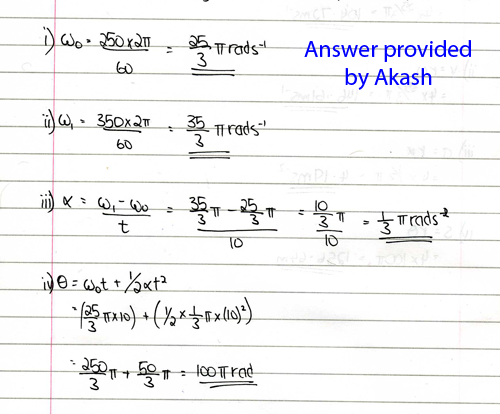 i) ω₀ = 250×2π/60 = 25/3 π rads⁻¹
Answer provided
by Akash
ii) ω₁ = 350×2π/60 = 35/3 π rads⁻¹
iii) α = ω₁ - ω₀/t = 35/3 π - 25/3 π/10 = 10/3 π/10 = 1/3 π rads⁻²
iv) θ = ω₀t + ½αt²
= (25/3 π×10) + (½ × 1/3 π × (10)²)
= 250/3 π + 50/3 π = 100π rad